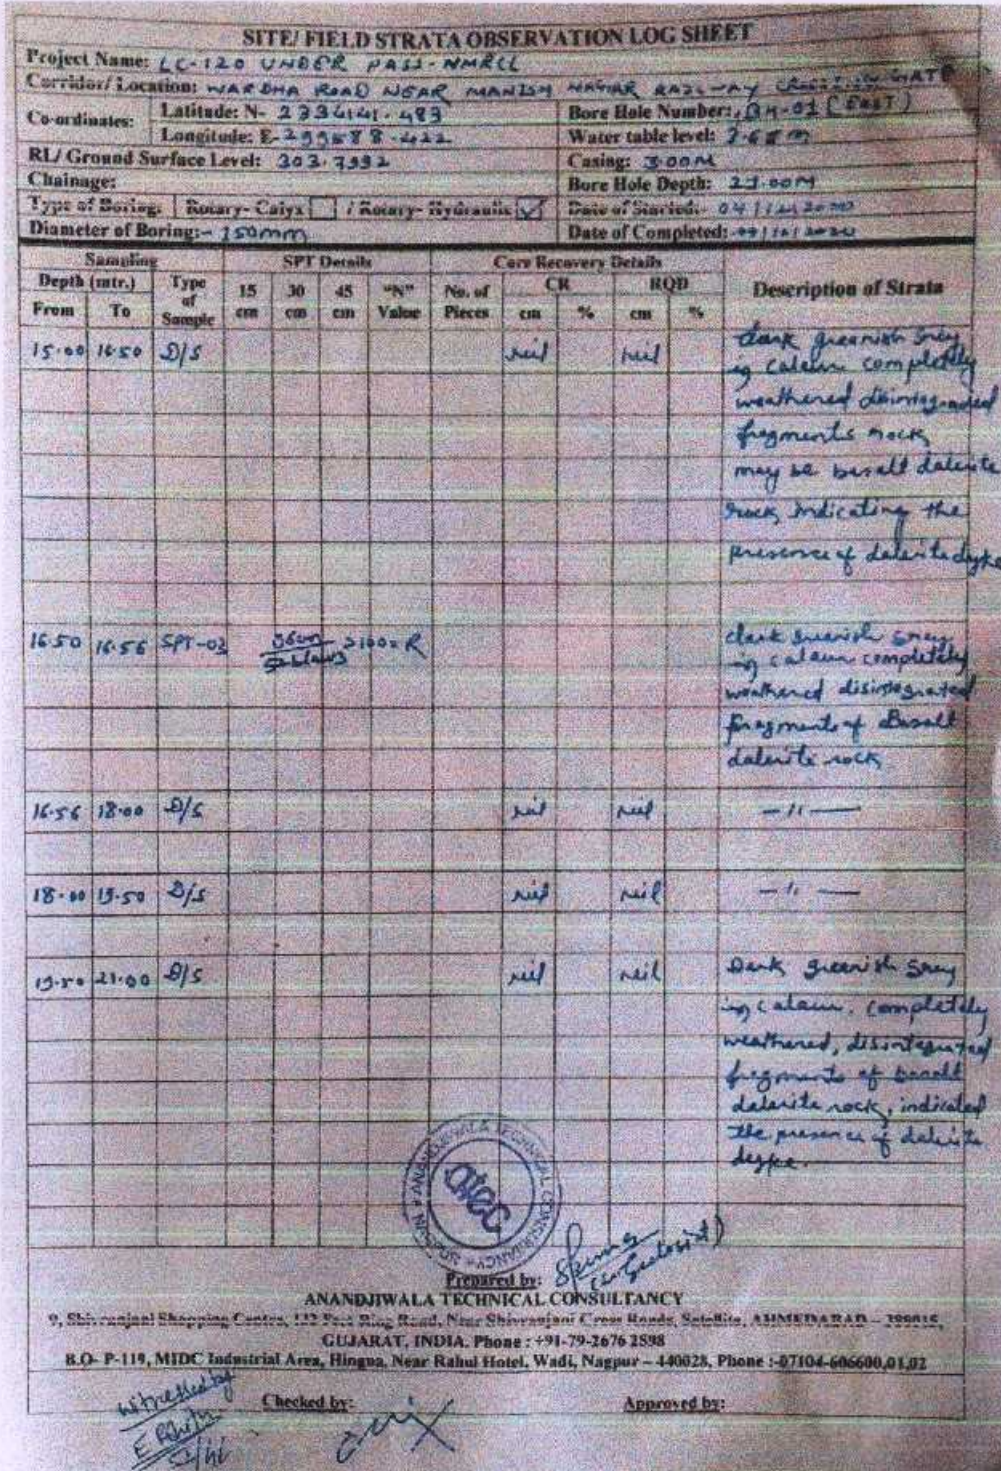 SITE/ FIELD STRATA OBSERVATION LOG SHEET
Project Name: LC-120 UNDER PASS-NMRCL
Corridor/ Location: WARDHA ROAD NEAR MANISH NAGAR RAILWAY CROSSING GATE
Co-ordinates: Latitude: N- 2334141.483 Bore Hole Number: BH-01 (EAST)
Longitude: E-299588.422 Water table level: 3.68m
RL/ Ground Surface Level: 303.7992 Casing: 3.00M
Chainage: Bore Hole Depth: 21.00M
Type of Boring: Rotary- Calyx / Rotary- Hydraulic Date of Started:- 04/12/2020
Diameter of Boring:- 150mm Date of Completed:
Sampling SPT Details Core Recovery Details Description of Strata
Depth (mtr.) Type of Sample 15 cm 30 cm 45 cm "N" Value No. of Pieces CR RQD
From To cm % cm %
15.00 16.50 D/S nil nil dark greenish grey
ing calaur completely
weathered disintegrated
fragments rock
may be basalt dalerite
rock indicating the
presence of dalerite dyke
16.50 16.56 SPT-03 >100=R dark greenish grey
ing calaur completely
weathered disintegrated
fragments of Basalt
dalerite rock
16.56 18.00 D/S nil nil —11—
18.00 19.50 D/S nil nil —11—
19.50 21.00 D/S nil nil Dark greenish grey
ing calaur. completely
weathered, disintegrated
fragments of basalt
dalerite rock, indicated
the presence of dalerite
dyke.
ANANDJIWALA TECHNICAL CONSULTANCY
atec
Prepared by:
ANANDJIWALA TECHNICAL CONSULTANCY
9, Shivranjani Shopping Centre, 132 Feet Ring Road, Near Shivranjani Cross Roads, Satellite, AHMEDABAD – 380015,
GUJARAT, INDIA. Phone : +91-79-2676 2898
B.O- P-119, MIDC Industrial Area, Hingna, Near Rahul Hotel, Wadi, Nagpur – 440028, Phone :-07104-606600,01,02
Witnessed by
Checked by: Approved by: